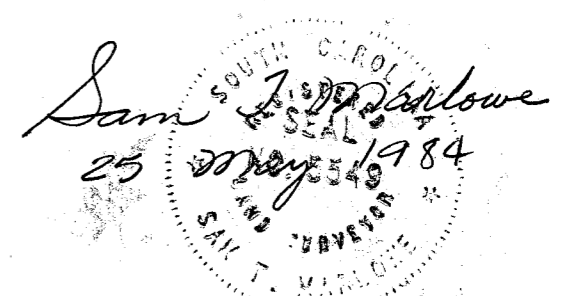 Sam T. Marlowe
25 May 1984
SOUTH CAROLINA
REGISTERED
SEAL
No. 5549
LAND SURVEYOR
SAM T. MARLOWE